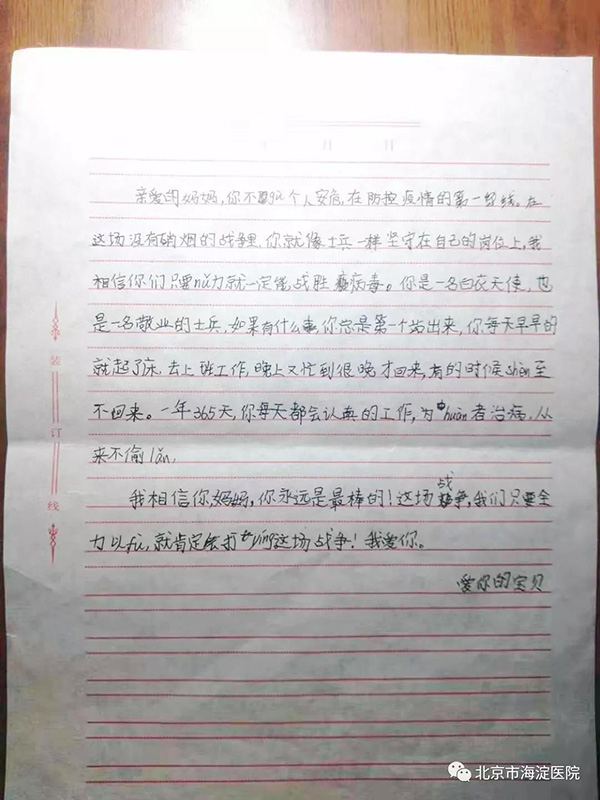 月 日
亲爱的妈妈,你不顾个人安危,在防控疫情的第一线。在
这场没有硝烟的战争里,你就像士兵一样坚守在自己的岗位上,我
相信你们只要nǔ力就一定能战胜病毒。你是一名白衣天使,也
是一名敬业的士兵,如果有什么事,你总是第一个站出来,你每天早早的
就起了床,去上班工作,晚上又忙到很晚才回来,有的时候shèn至
不回来。一年365天,你每天都会认真的工作,为huàn者治病,从
来不偷lǎn,
我相信你,妈妈,你永远是最棒的!这场战争,我们只要全
力以fù,就肯定会打yíng这场战争!我爱你。
爱你的宝贝
装订线
北京市海淀医院